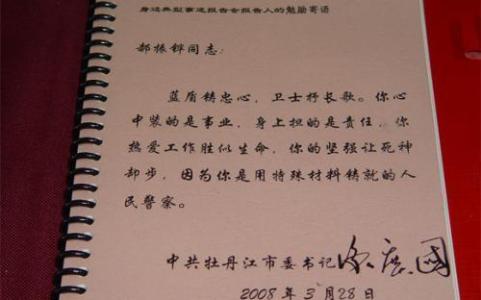 身边典型事迹报告会报告人的勉励寄语
郝振铎同志:
蓝盾铸忠心,卫士抒长歌。你心
中装的是事业,身上担的是责任,你
热爱工作胜似生命,你的坚强让死神
却步,因为你是用特殊材料铸就的人
民警察。
中共牡丹江市委书记
2008年3月28日